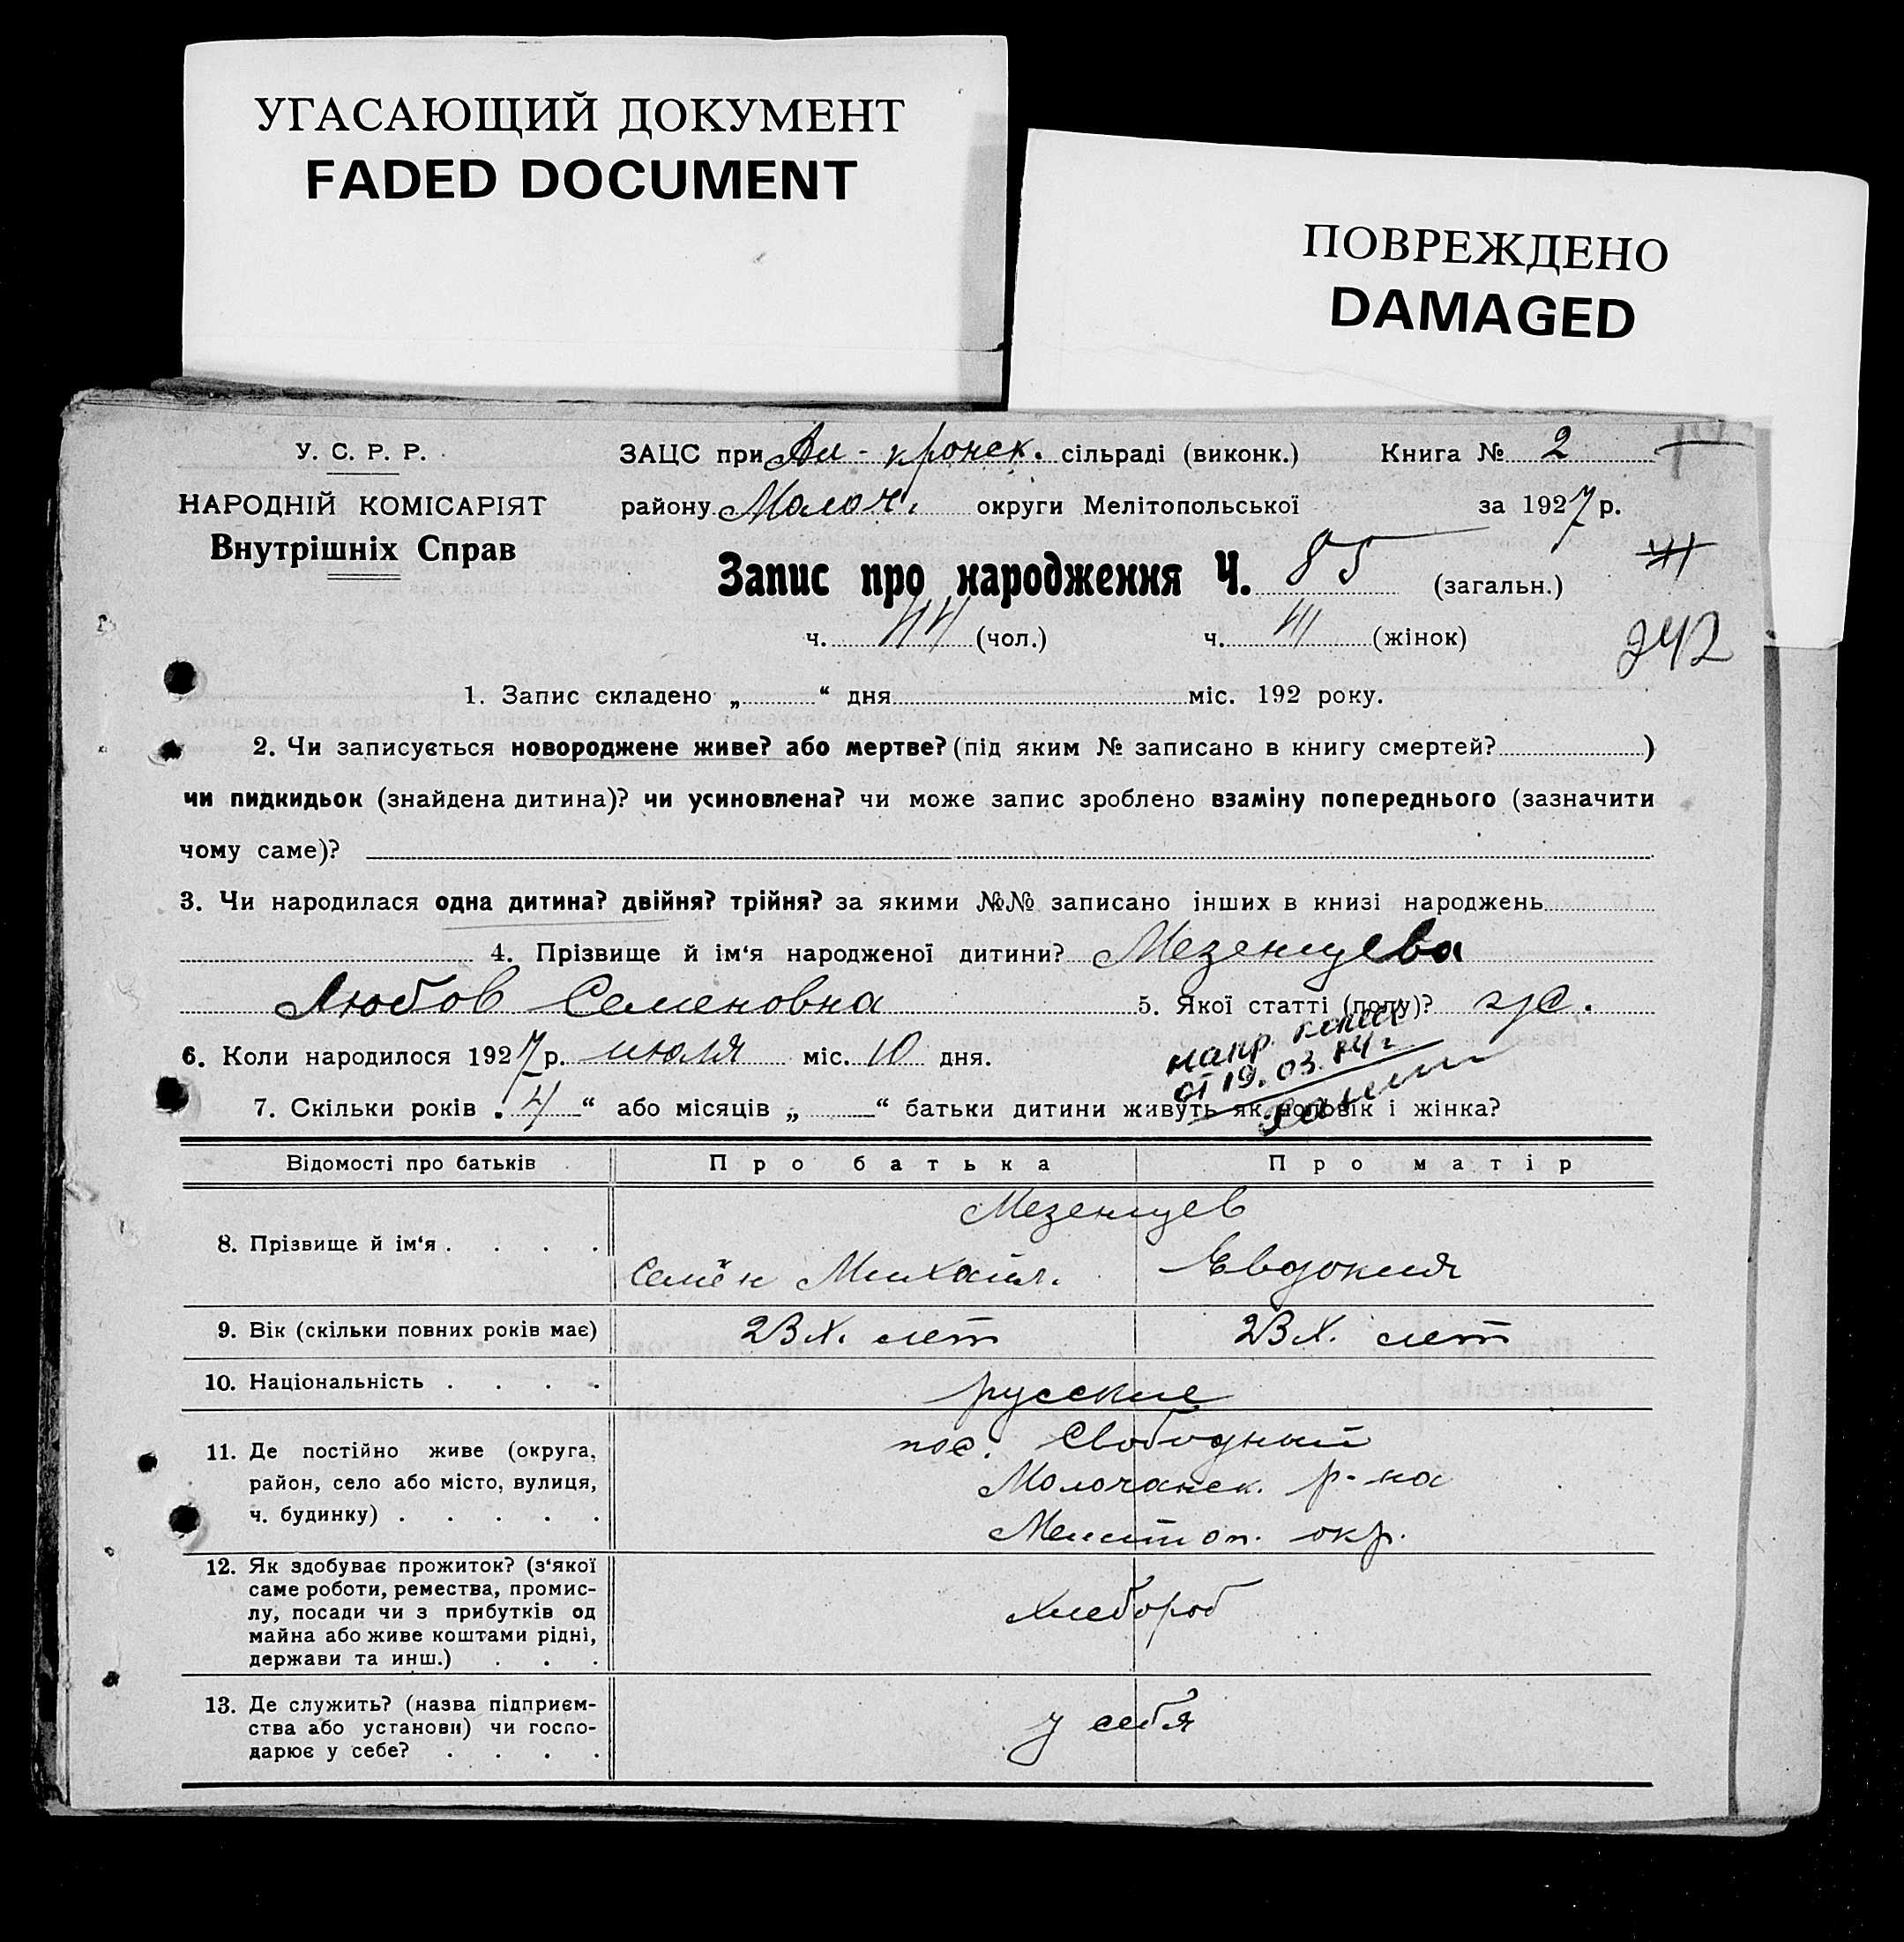 УГАСАЮЩИЙ ДОКУМЕНТ
FADED DOCUMENT
ПОВРЕЖДЕНО
DAMAGED
У. С. Р. Р.
НАРОДНІЙ КОМІСАРІЯТ
Внутрішніх Справ
ЗАЦС при Ал-кронск. сільраді (виконк.) Книга № 2
району Молоч. округи Мелітопольської за 1927 р.
Запис про народження Ч. 85 (загальн.)
ч. 44 (чол.) ч. 41 (жінок)
242
1. Запис складено „ “ дня міс. 192 року.
2. Чи записується новороджене живе? або мертве? (під яким № записано в книгу смертей? )
чи пидкидьок (знайдена дитина)? чи усиновлена? чи може запис зроблено взаміну попереднього (зазначити
чому саме)?
3. Чи народилася одна дитина? двійня? трійня? за якими №№ записано інших в книзі народжень
4. Прізвище й ім‘я народженої дитини? Мезенцева
Любов Семеновна 5. Якої статті (полу)? ж.
6. Коли народилося 1927 р. июля міс. 10 дня.
от 19.03.84 г
7. Скільки років „ 4 “ або місяців „ “ батьки дитини живуть як чоловік і жінка?
Відомості про батьків Про батька Про матір
8. Прізвище й ім‘я . . . .
Мезенцев
Семён Михайл. Евдокия
9. Вік (скільки повних років має) 23х. лет 23х. лет
10. Національність . . . . русские
11. Де постійно живе (округа,
район, село або місто, вулиця,
ч. будинку) . . . . .
пос. Свободный
Молочанск. р-на
Мелитоп. окр.
12. Як здобуває прожиток? (з‘якої
саме роботи, ремества, промис-
лу, посади чи з прибутків од
майна або живе коштами рідні,
держави та инш.) . . .
хлебороб
13. Де служить? (назва підприєм-
ства або установи) чи госпо-
дарює у себе? . . . .
у себя